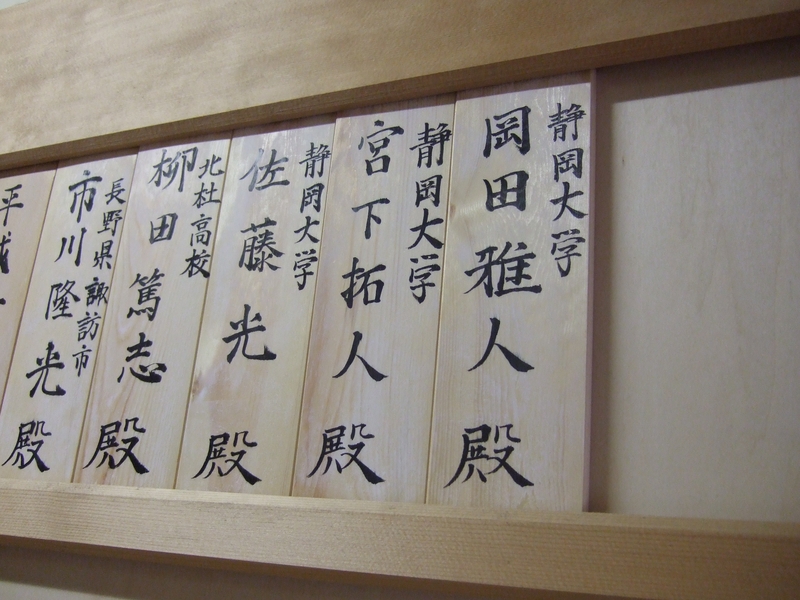 静岡大学
岡田雅人殿
静岡大学
宮下拓人殿
静岡大学
佐藤光殿
北杜高校
柳田篤志殿
長野県諏訪市
市川隆光殿
平成